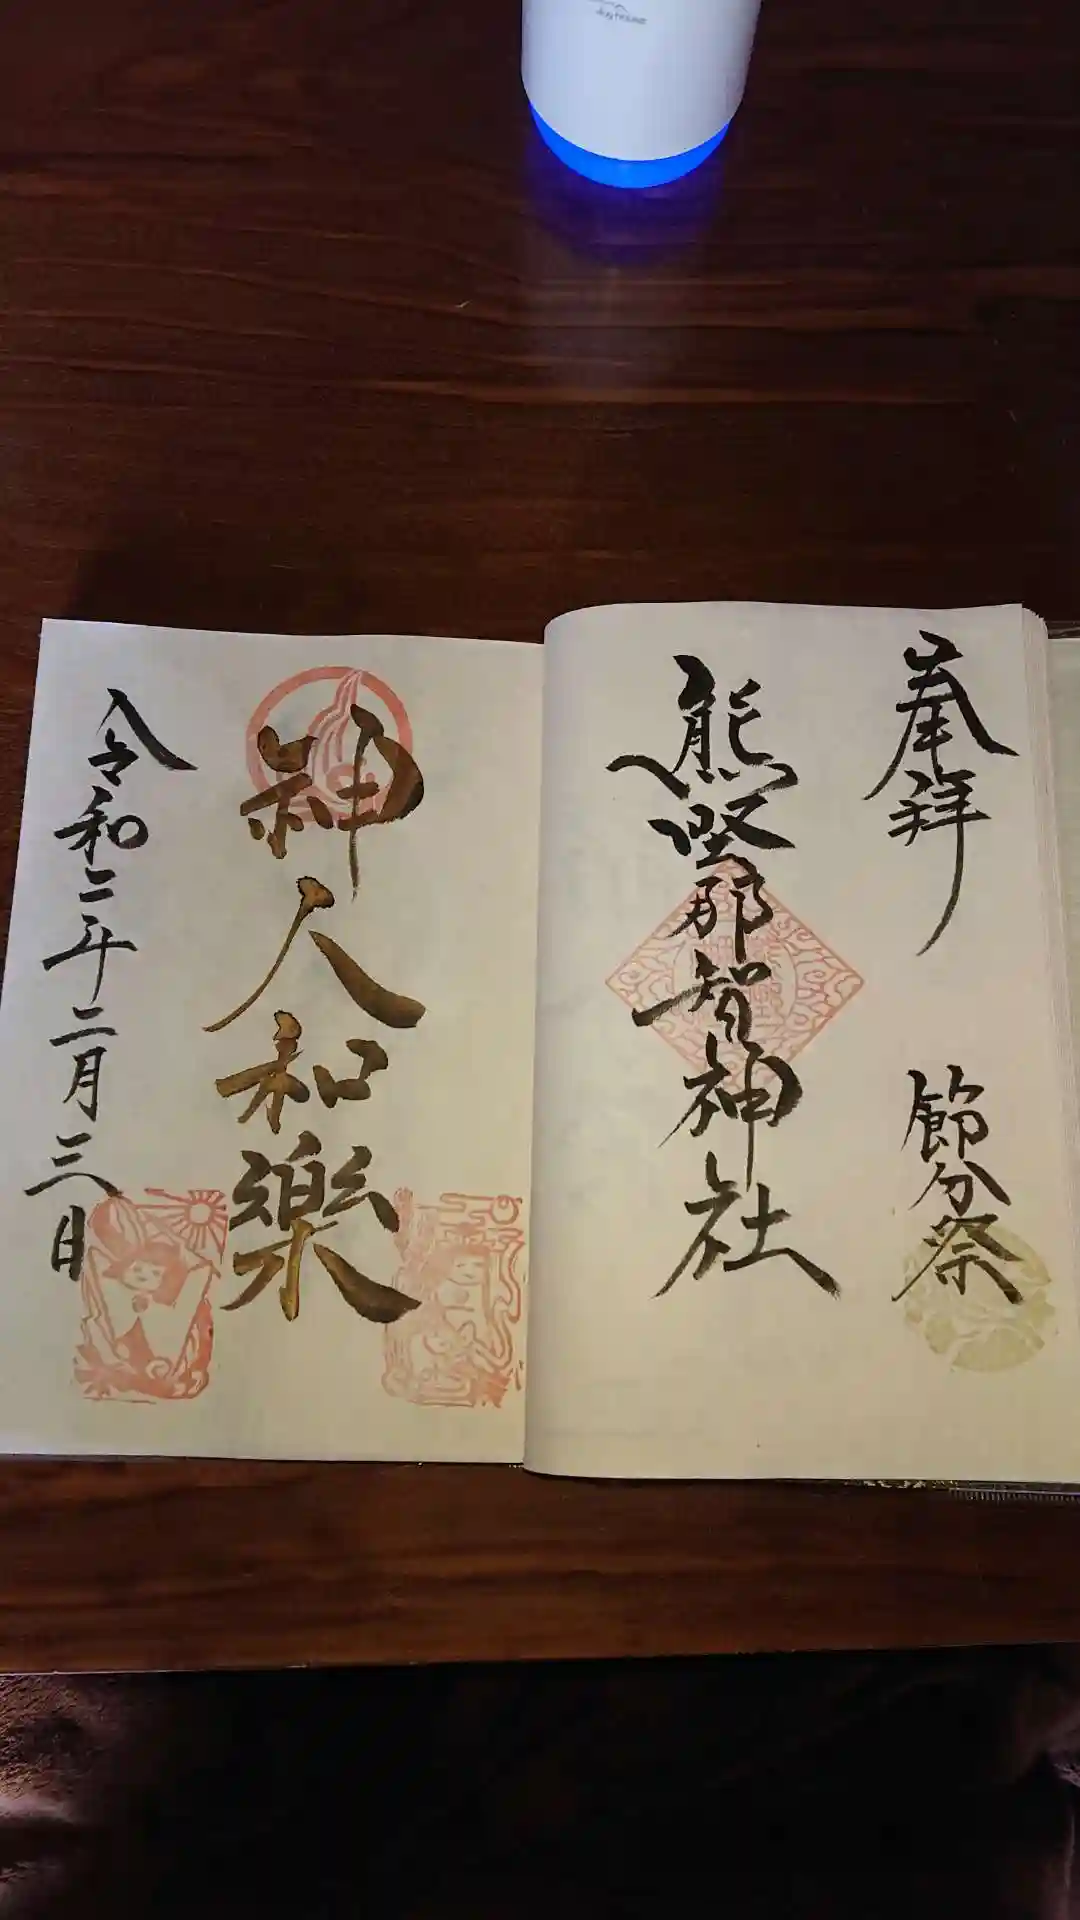 奉拝 節分祭
熊野那智神社
神人和樂
令和二年二月三日